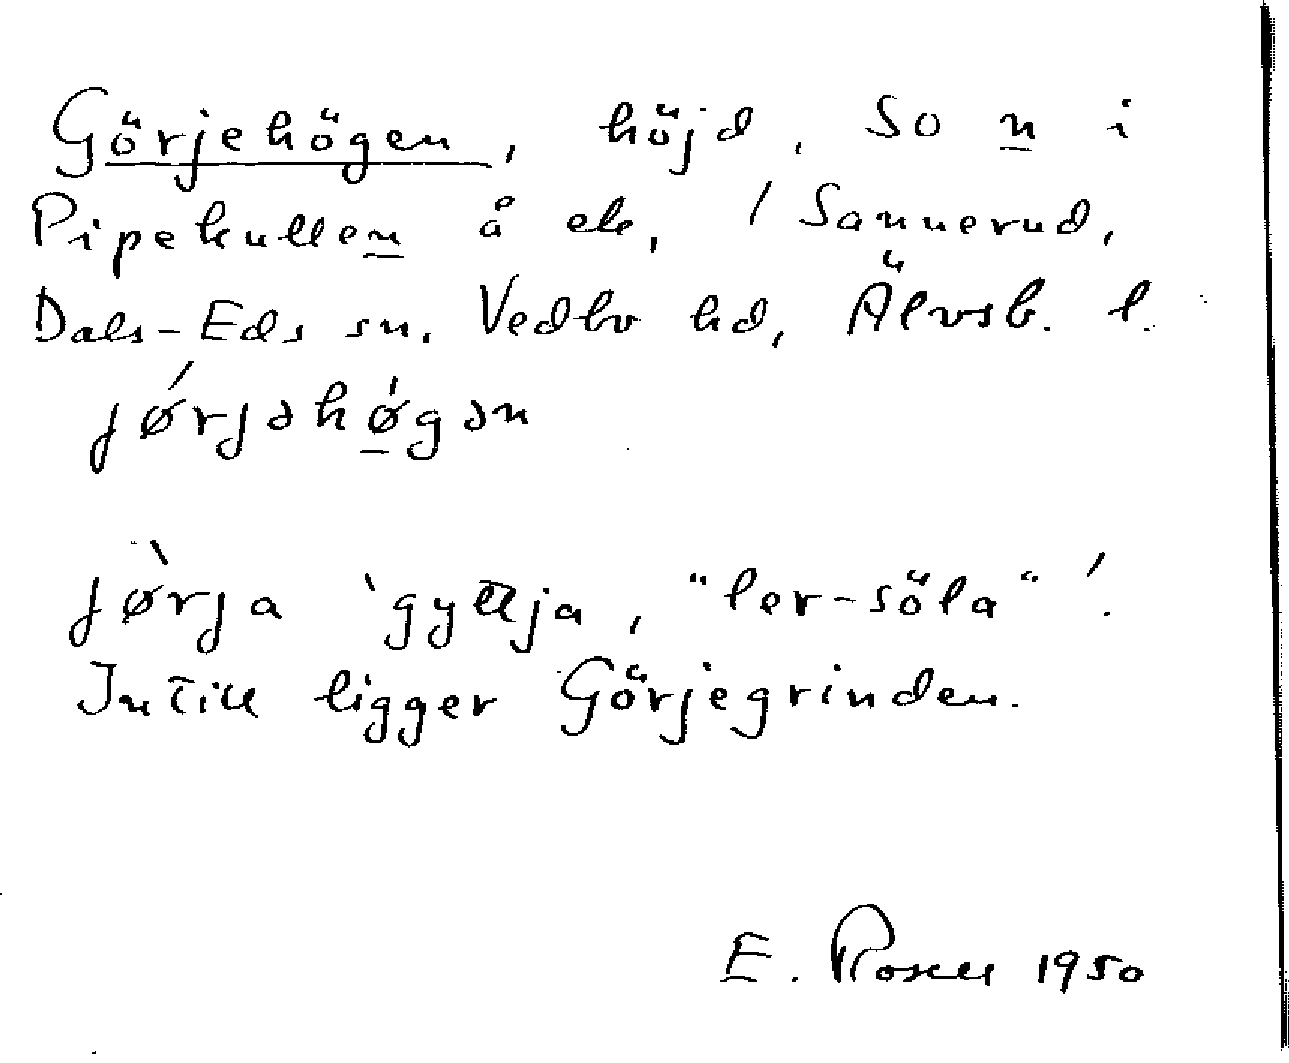 Görjehögen, höjd, SO n i
Pipekullen å ek, / Sannerud,
Dals-Eds sn, Vedbo hd, Älvsb. l.
ɟǿrɟəhø̀gən
ɟø̀rɟa 'gyttja, "ler-söla"'.
Intill ligger Görjegrinden.
E. Rosell 1950